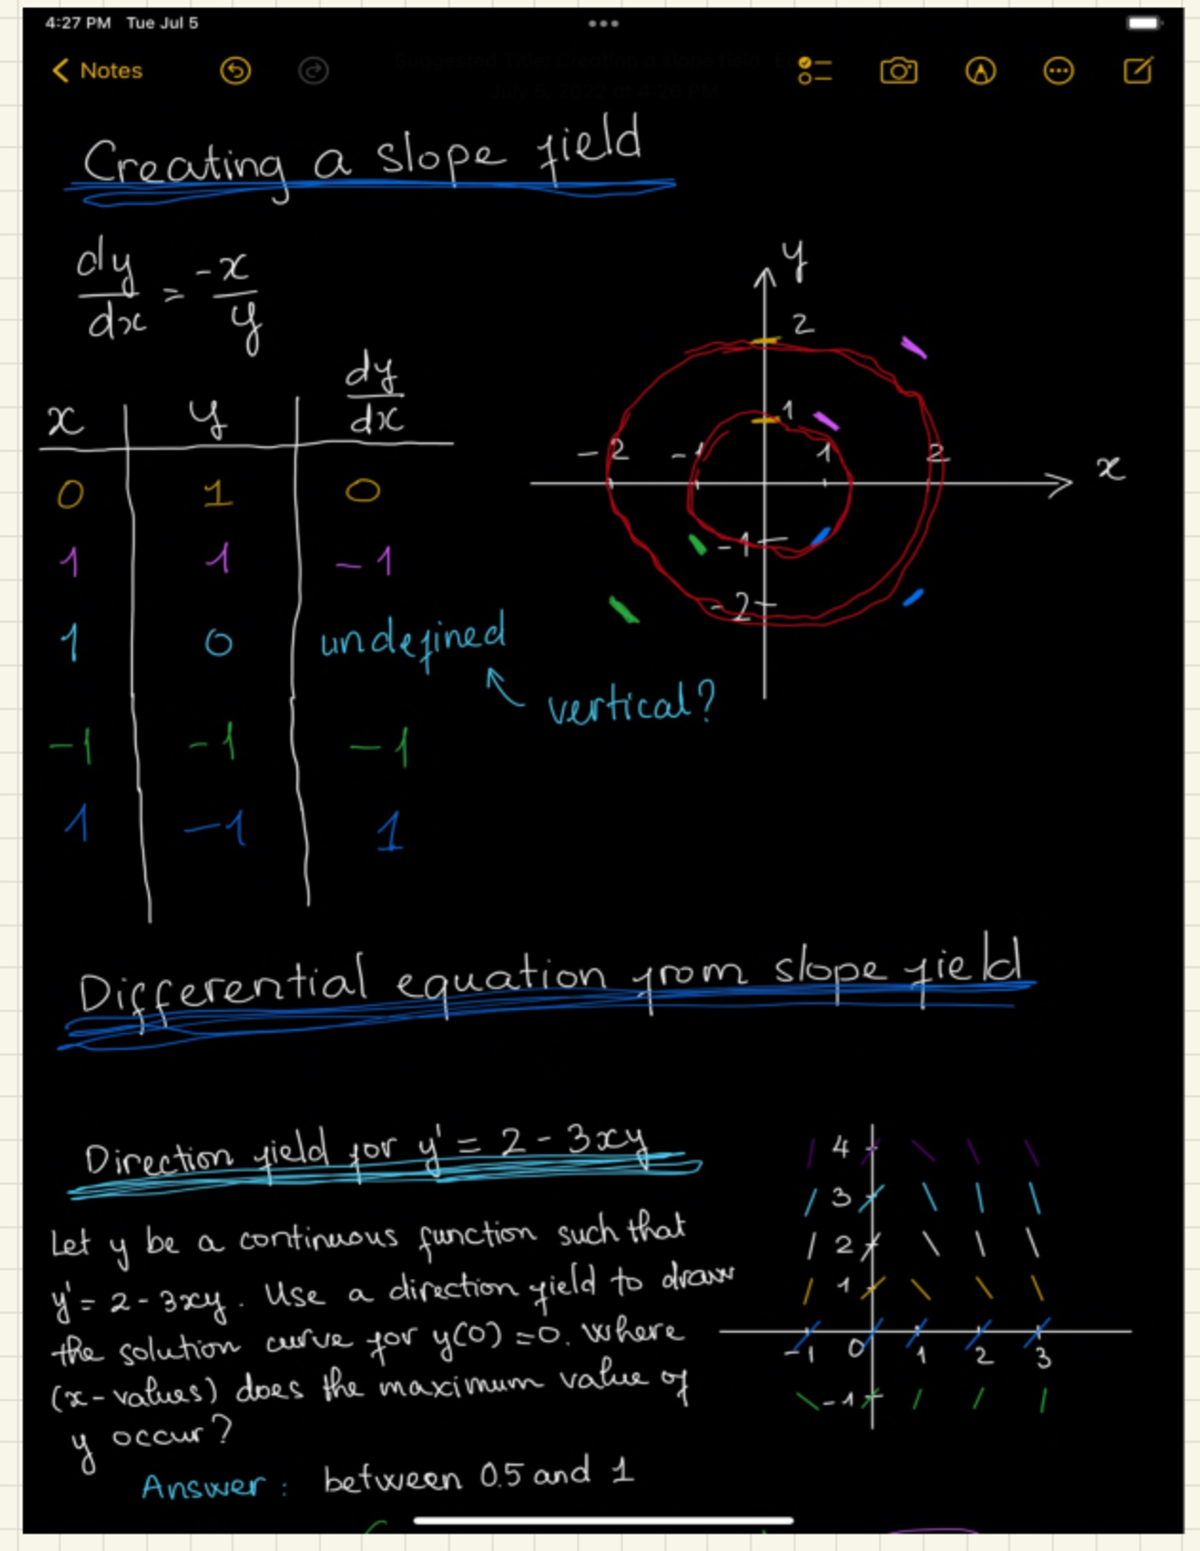 4:27 PM Tue Jul 5
Notes
Suggested Title: Creating a slope field
July 5, 2022 at 4:26 PM
Creating a slope field
dy/dx = -x/y
x y dy/dx
0 1 0
1 1 -1
1 0 undefined
vertical?
-1 -1 -1
1 -1 1
y
2
1
-2 -1 1 2 x
-1
-2
Differential equation from slope field
Direction field for y' = 2 - 3xy
Let y be a continuous function such that
y' = 2 - 3xy. Use a direction field to draw
the solution curve for y(0) = 0. Where
(x-values) does the maximum value of
y occur?
Answer: between 0.5 and 1
4
3
2
1
-1 0 1 2 3
-1